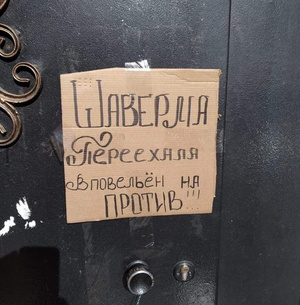 ШАВЕРМА
Переехала
в повельён на
ПРОТИВ!!!